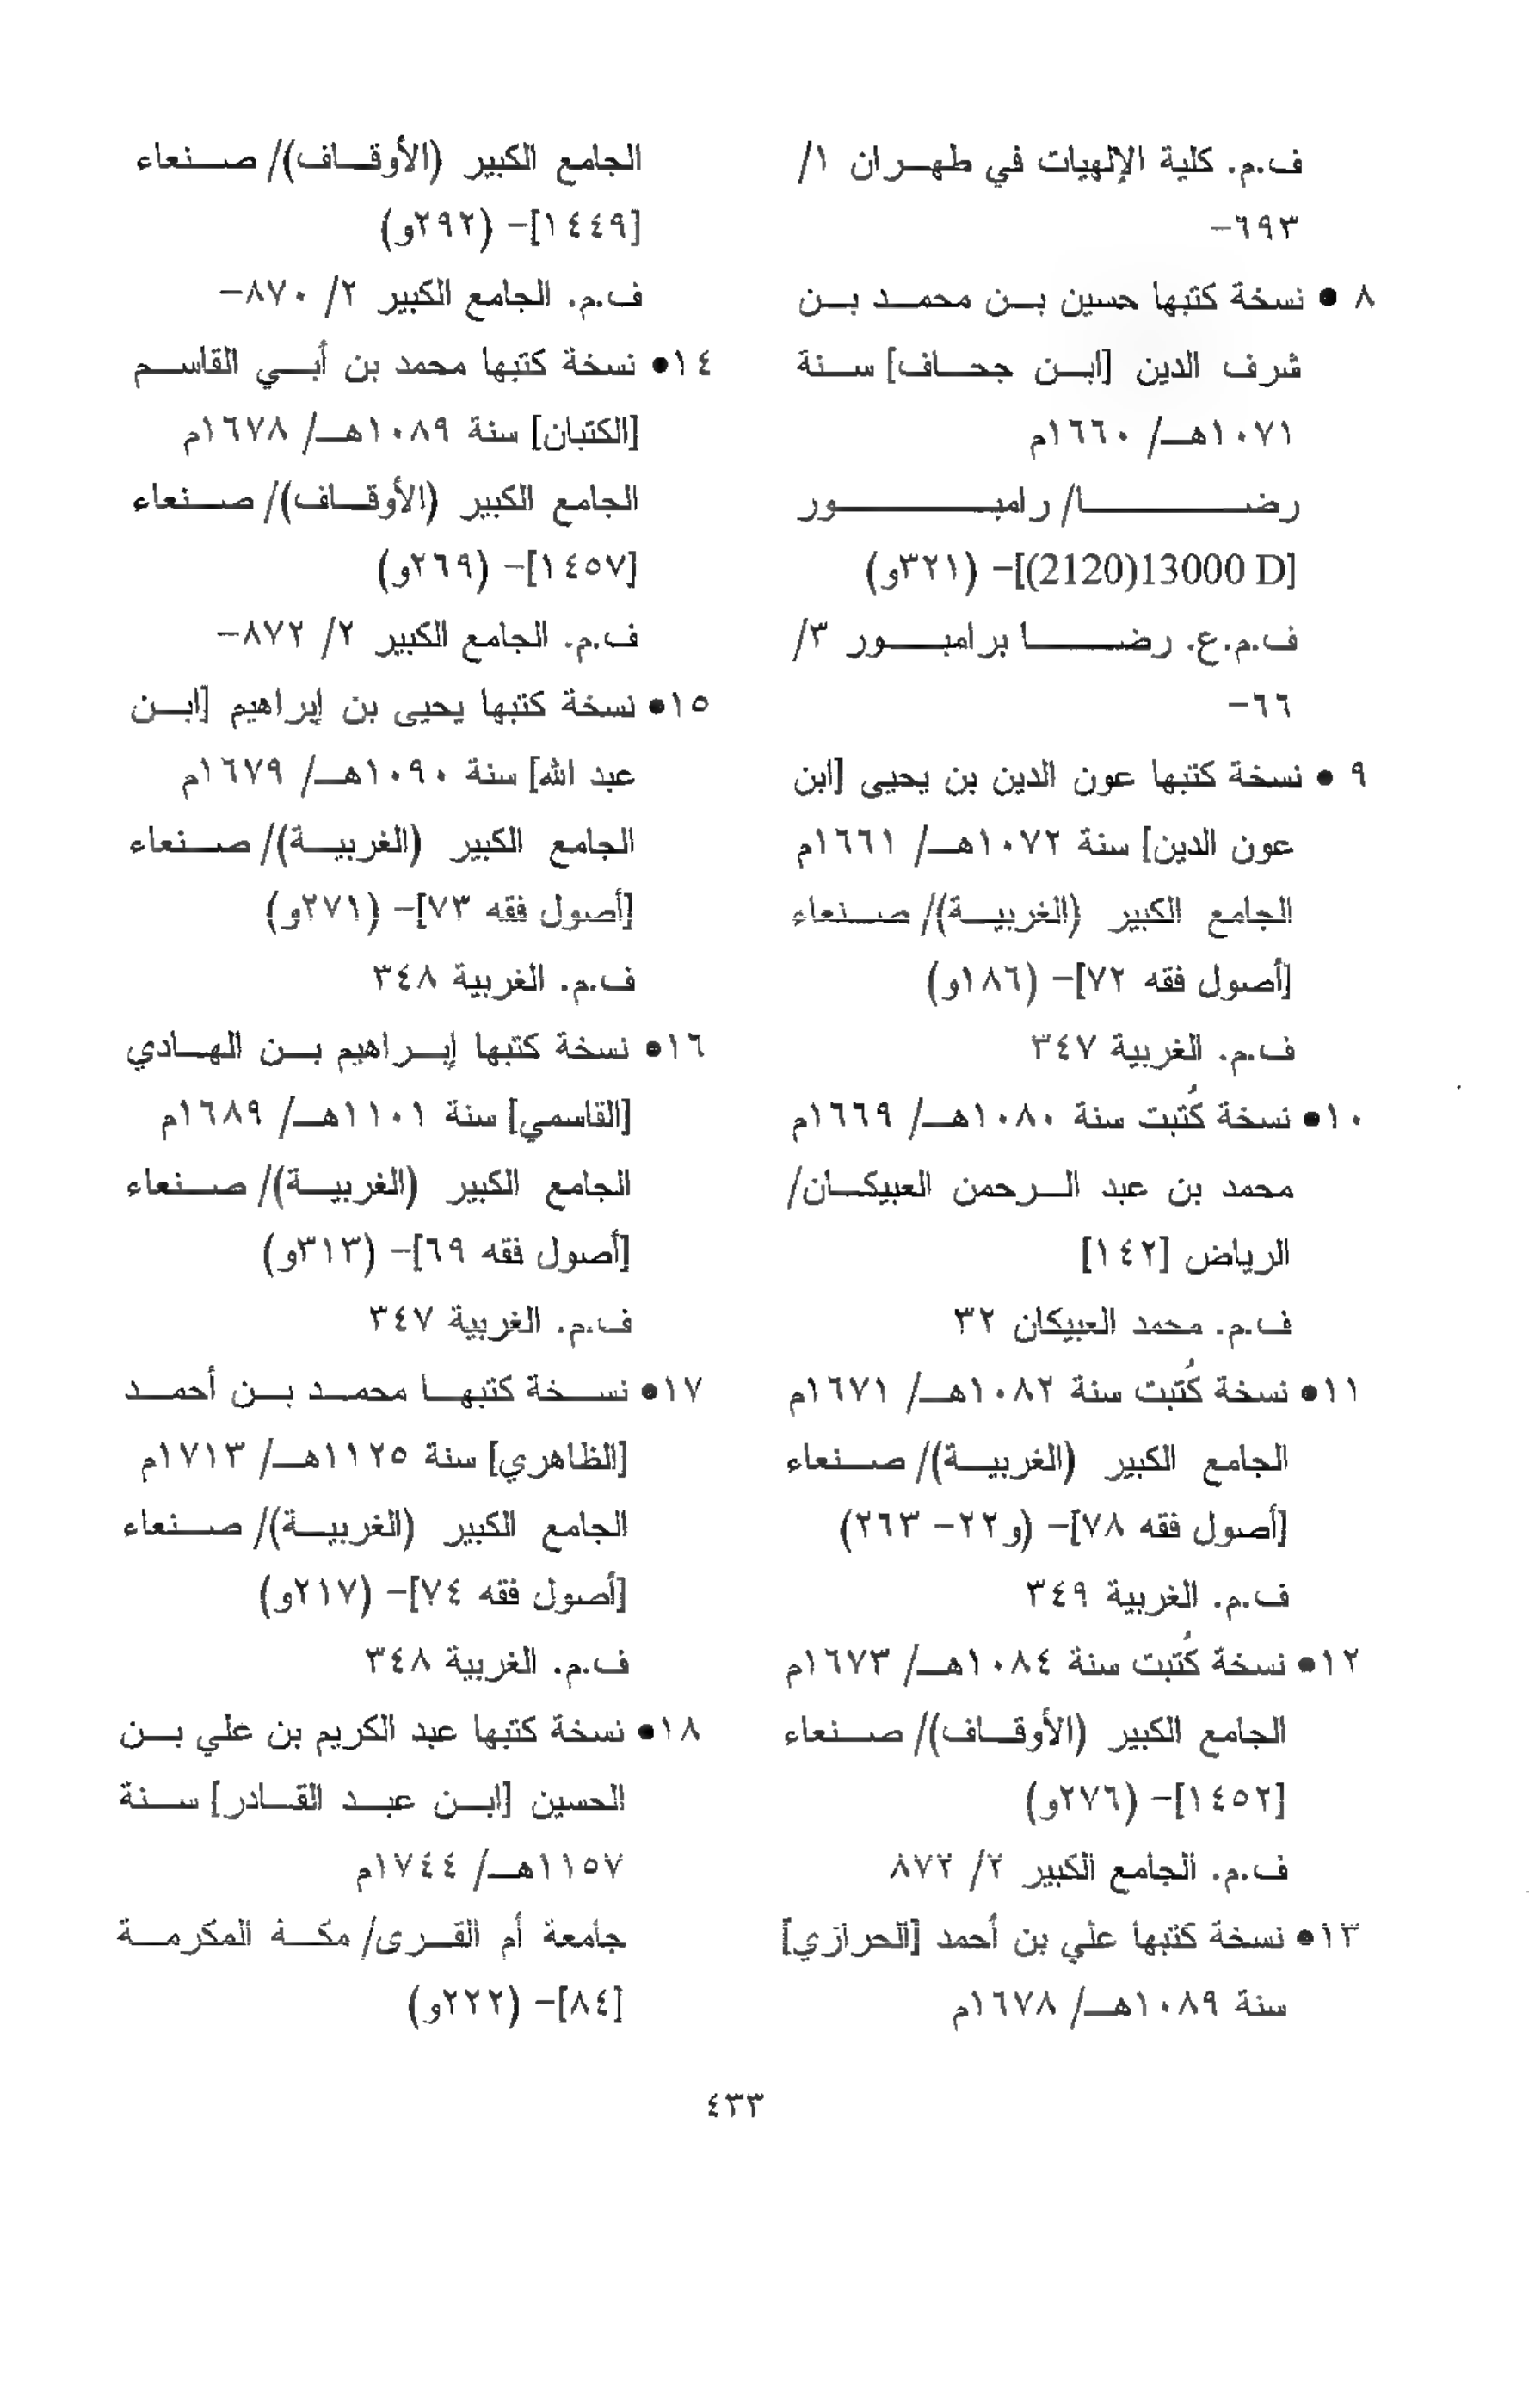 ف.م. كلية الإلهيات في طهران ١/
٦٩٣-
٨ • نسخة كتبها حسين بن محمد بن
شرف الدين [ابن جحاف] سنة
١٠٧١هـ/ ١٦٦٠م
رضا/ رامبور
[13000 D(2120)]- (٣٢١و)
ف.م.ع. رضا برامبور ٣/
٦٦-
٩ • نسخة كتبها عون الدين بن يحيى [ابن
عون الدين] سنة ١٠٧٢هـ/ ١٦٦١م
الجامع الكبير (الغربية)/ صنعاء
[أصول فقه ٧٢]- (١٨٦و)
ف.م. الغربية ٣٤٧
١٠• نسخة كُتبت سنة ١٠٨٠هـ/ ١٦٦٩م
محمد بن عبد الرحمن العبيكان/
الرياض [١٤٢]
ف.م. محمد العبيكان ٣٢
١١• نسخة كُتبت سنة ١٠٨٢هـ/ ١٦٧١م
الجامع الكبير (الغربية)/ صنعاء
[أصول فقه ٧٨]- (و٢٢- ٢٦٣)
ف.م. الغربية ٣٤٩
١٢• نسخة كُتبت سنة ١٠٨٤هـ/ ١٦٧٣م
الجامع الكبير (الأوقاف)/ صنعاء
[١٤٥٢]- (٢٧٦و)
ف.م. الجامع الكبير ٢/ ٨٧٢
١٣• نسخة كتبها علي بن أحمد [الحرازي]
سنة ١٠٨٩هـ/ ١٦٧٨م
الجامع الكبير (الأوقاف)/ صنعاء
[١٤٤٩]- (٢٩٢و)
ف.م. الجامع الكبير ٢/ ٨٧٠-
١٤• نسخة كتبها محمد بن أبي القاسم
[الكتبان] سنة ١٠٨٩هـ/ ١٦٧٨م
الجامع الكبير (الأوقاف)/ صنعاء
[١٤٥٧]- (٢٦٩و)
ف.م. الجامع الكبير ٢/ ٨٧٢-
١٥• نسخة كتبها يحيى بن إبراهيم [ابن
عبد الله] سنة ١٠٩٠هـ/ ١٦٧٩م
الجامع الكبير (الغربية)/ صنعاء
[أصول فقه ٧٣]- (٢٧١و)
ف.م. الغربية ٣٤٨
١٦• نسخة كتبها إبراهيم بن الهادي
[القاسمي] سنة ١١٠١هـ/ ١٦٨٩م
الجامع الكبير (الغربية)/ صنعاء
[أصول فقه ٦٩]- (٣١٣و)
ف.م. الغربية ٣٤٧
١٧• نسخة كتبها محمد بن أحمد
[الظاهري] سنة ١١٢٥هـ/ ١٧١٣م
الجامع الكبير (الغربية)/ صنعاء
[أصول فقه ٧٤]- (٢١٧و)
ف.م. الغربية ٣٤٨
١٨• نسخة كتبها عبد الكريم بن علي بن
الحسين [ابن عبد القادر] سنة
١١٥٧هـ/ ١٧٤٤م
جامعة أم القرى/ مكة المكرمة
[٨٤]- (٢٢٢و)
٤٣٣